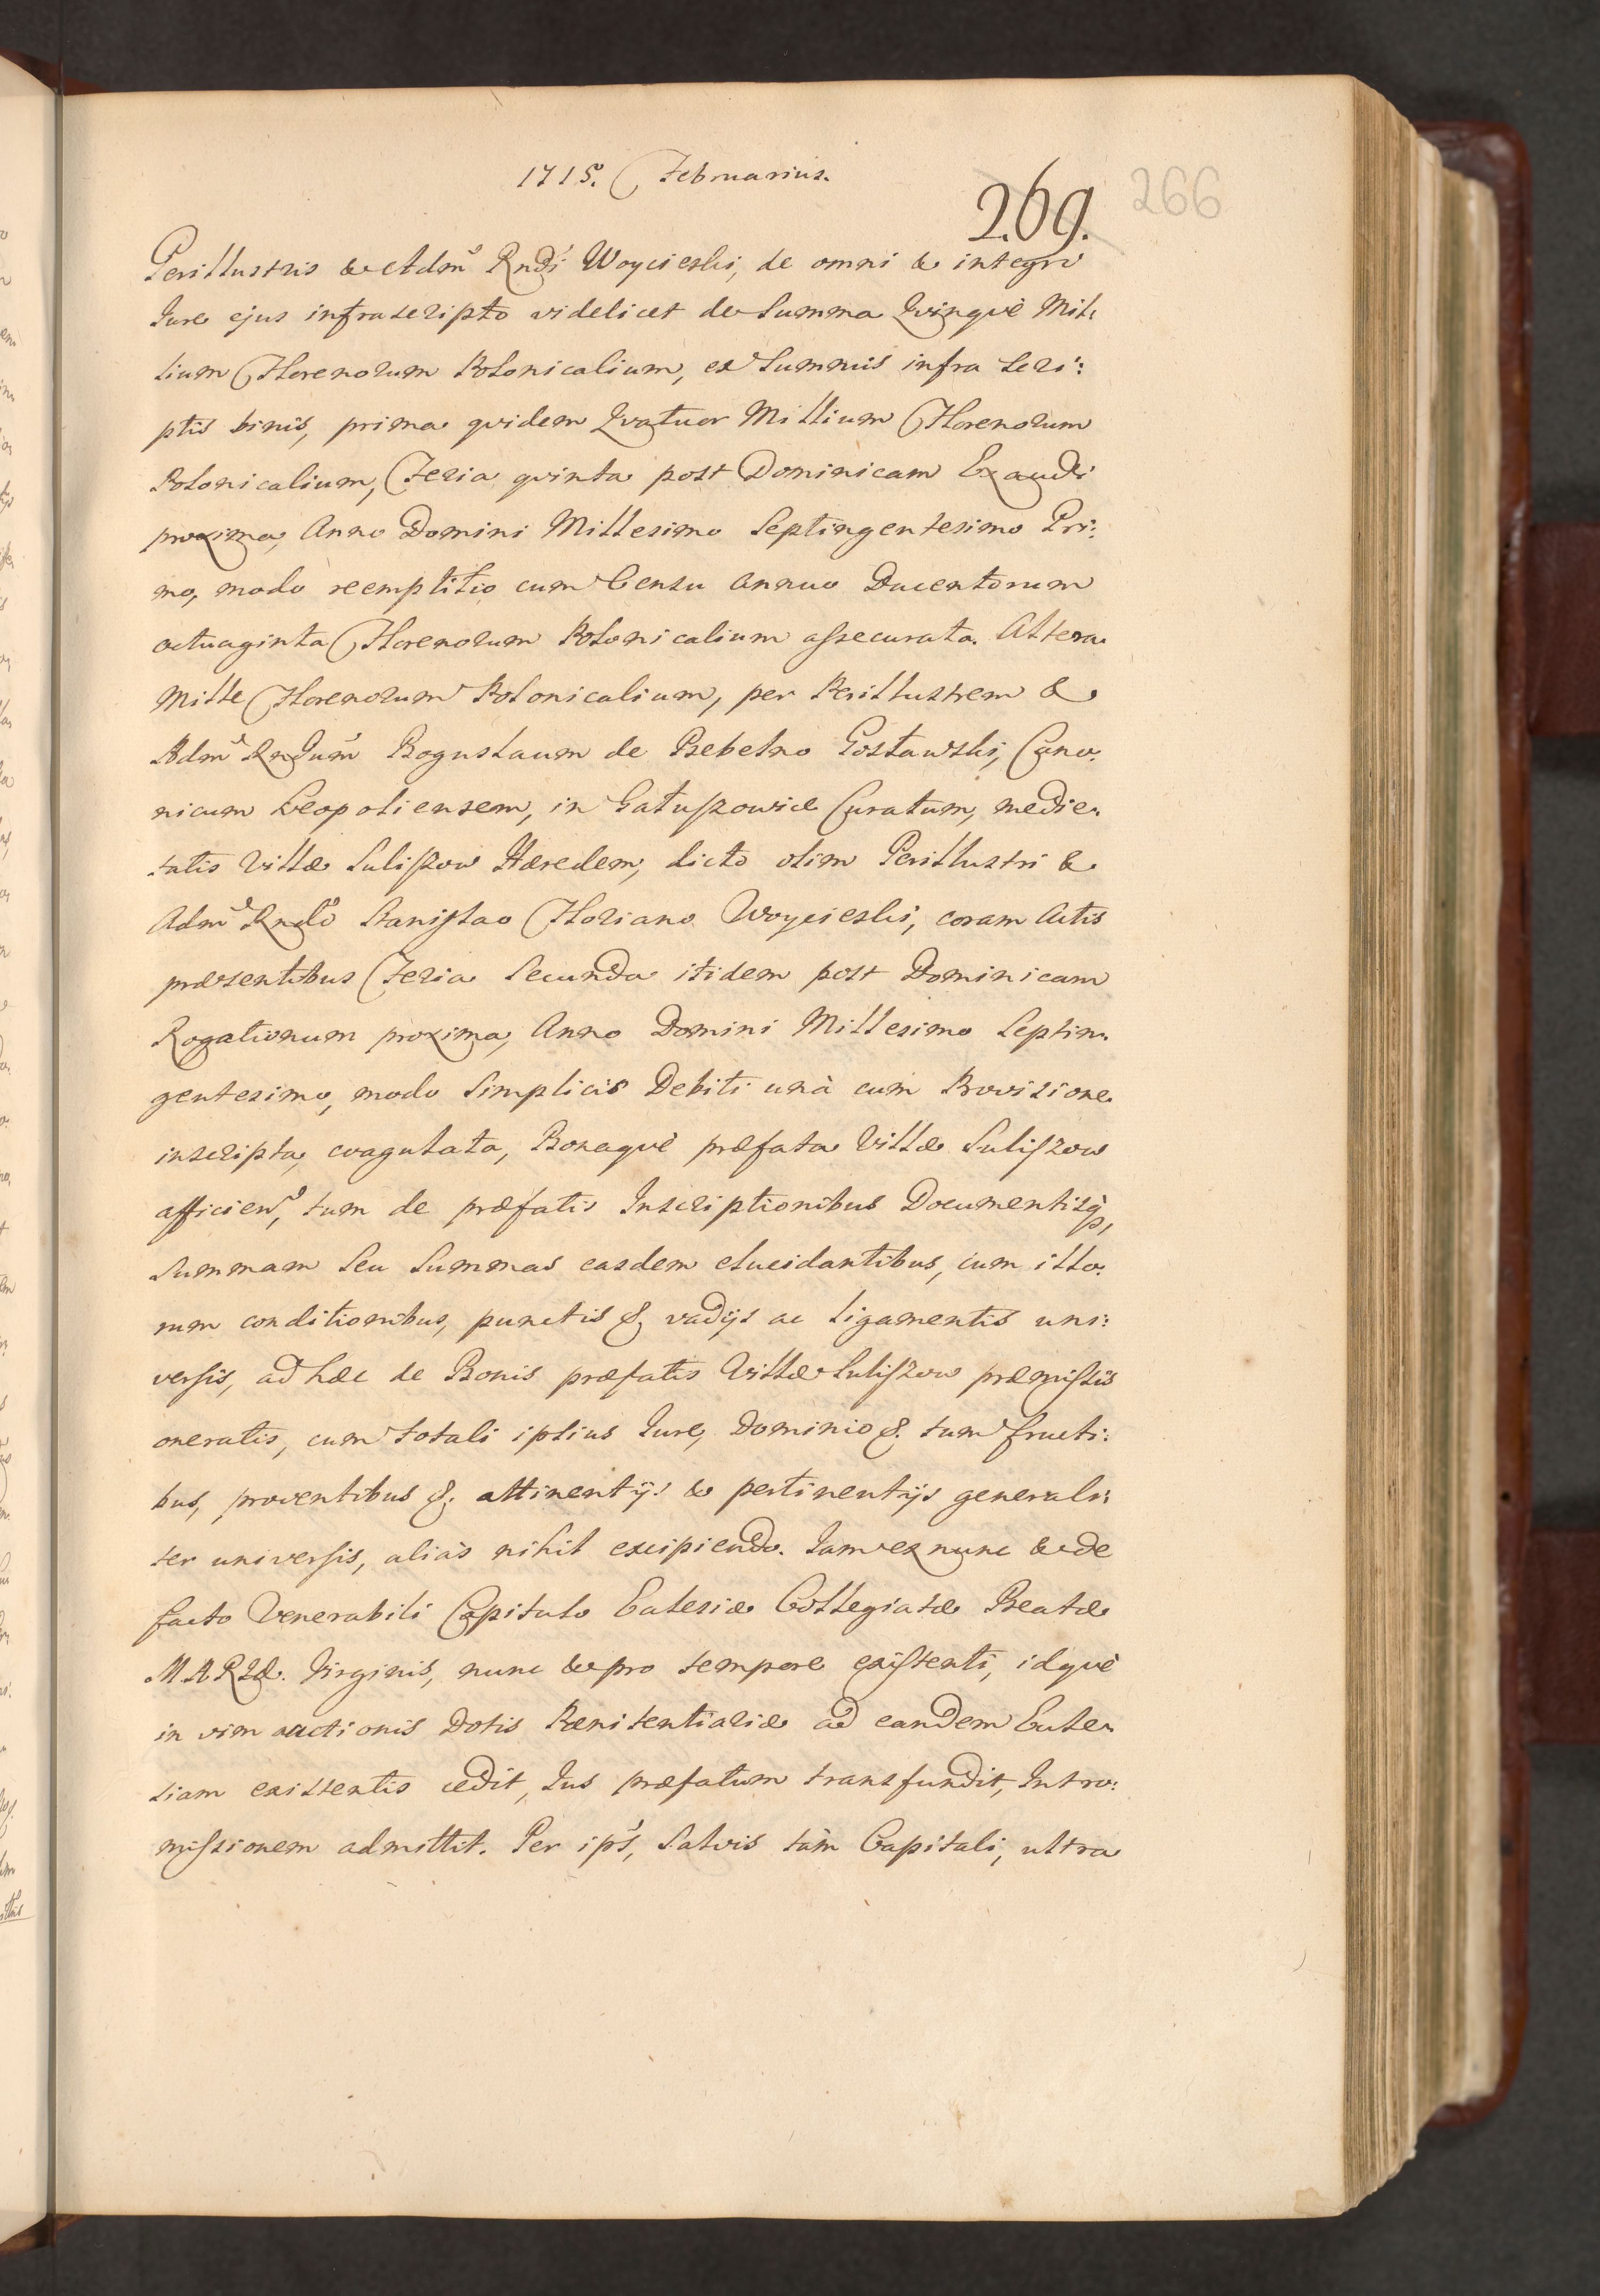 1715. Februarius.
269. 266
Perillustris & Adm̃ Rndi Woycieski, de omni & integro
Jure ejus infrascripto videlicet de Summa Qvinqvè Mil-
lium Florenorum Polonicalium, ex Summis infra scri:
ptis binis, prima qvidem Qvatuor Millium Florenorum
Polonicalium, Feria qvinta post Dominicam Exaudi
proxima, Anno Domini Millesimo Septingentesimo Pri:
mo, modo reemptitio cum Censu annuo Ducentorum
octuaginta Florenorum Polonicalium assecurata. Altera
Mille Florenorum Polonicalium, per Perillustrem &
Adm̃ Rndum̃ Boguslaum de Bebelno Gosławski, Cano-
nicum Leopoliensem, in Gałuszowice Curatum, medie-
tatis Villæ Suliszow Hæredem, dicto olim Perillustri &
Adm̃ Rndo Stanislao Floriano Woycieski, coram Actis
præsentibus Feria Secunda itidem post Dominicam
Rogationum proxima, Anno Domini Millesimo Septin-
gentesimo, modo Simplicis Debiti unà cum Provisione
inscripta, coagulata, Bonaqvè præfata Villæ Suliszow
afficien, tum de præfatis Inscriptionibus Documentisq,
Summam Seu Summas easdem elucidantibus, cum illo-
rum conditionibus, punctis &, vadijs ac ligamentis uni:
versis, ad hæc de Bonis præfatis Villæ Suliszow præmissis
oneratis, cum totali ipsius Jure, Dominio &. tum fructi:
bus, proventibus &. attinentijs & pertinentijs generali:
ter universis, aliàs nihil excipiendo. Jam ex nunc & de
facto Venerabili Capitulo Eclesiæ Collegiatæ Beatæ
MARIÆ. Virginis, nunc & pro tempore existenti, idqvè
in vim auctionis Dotis Pænitentiariæ ad eandem Ecle-
siam existentis cedit, Jus præfatum transfundit, Intro:
missionem admittit. Per ips̃, Salvis tàm Capitali, ultra